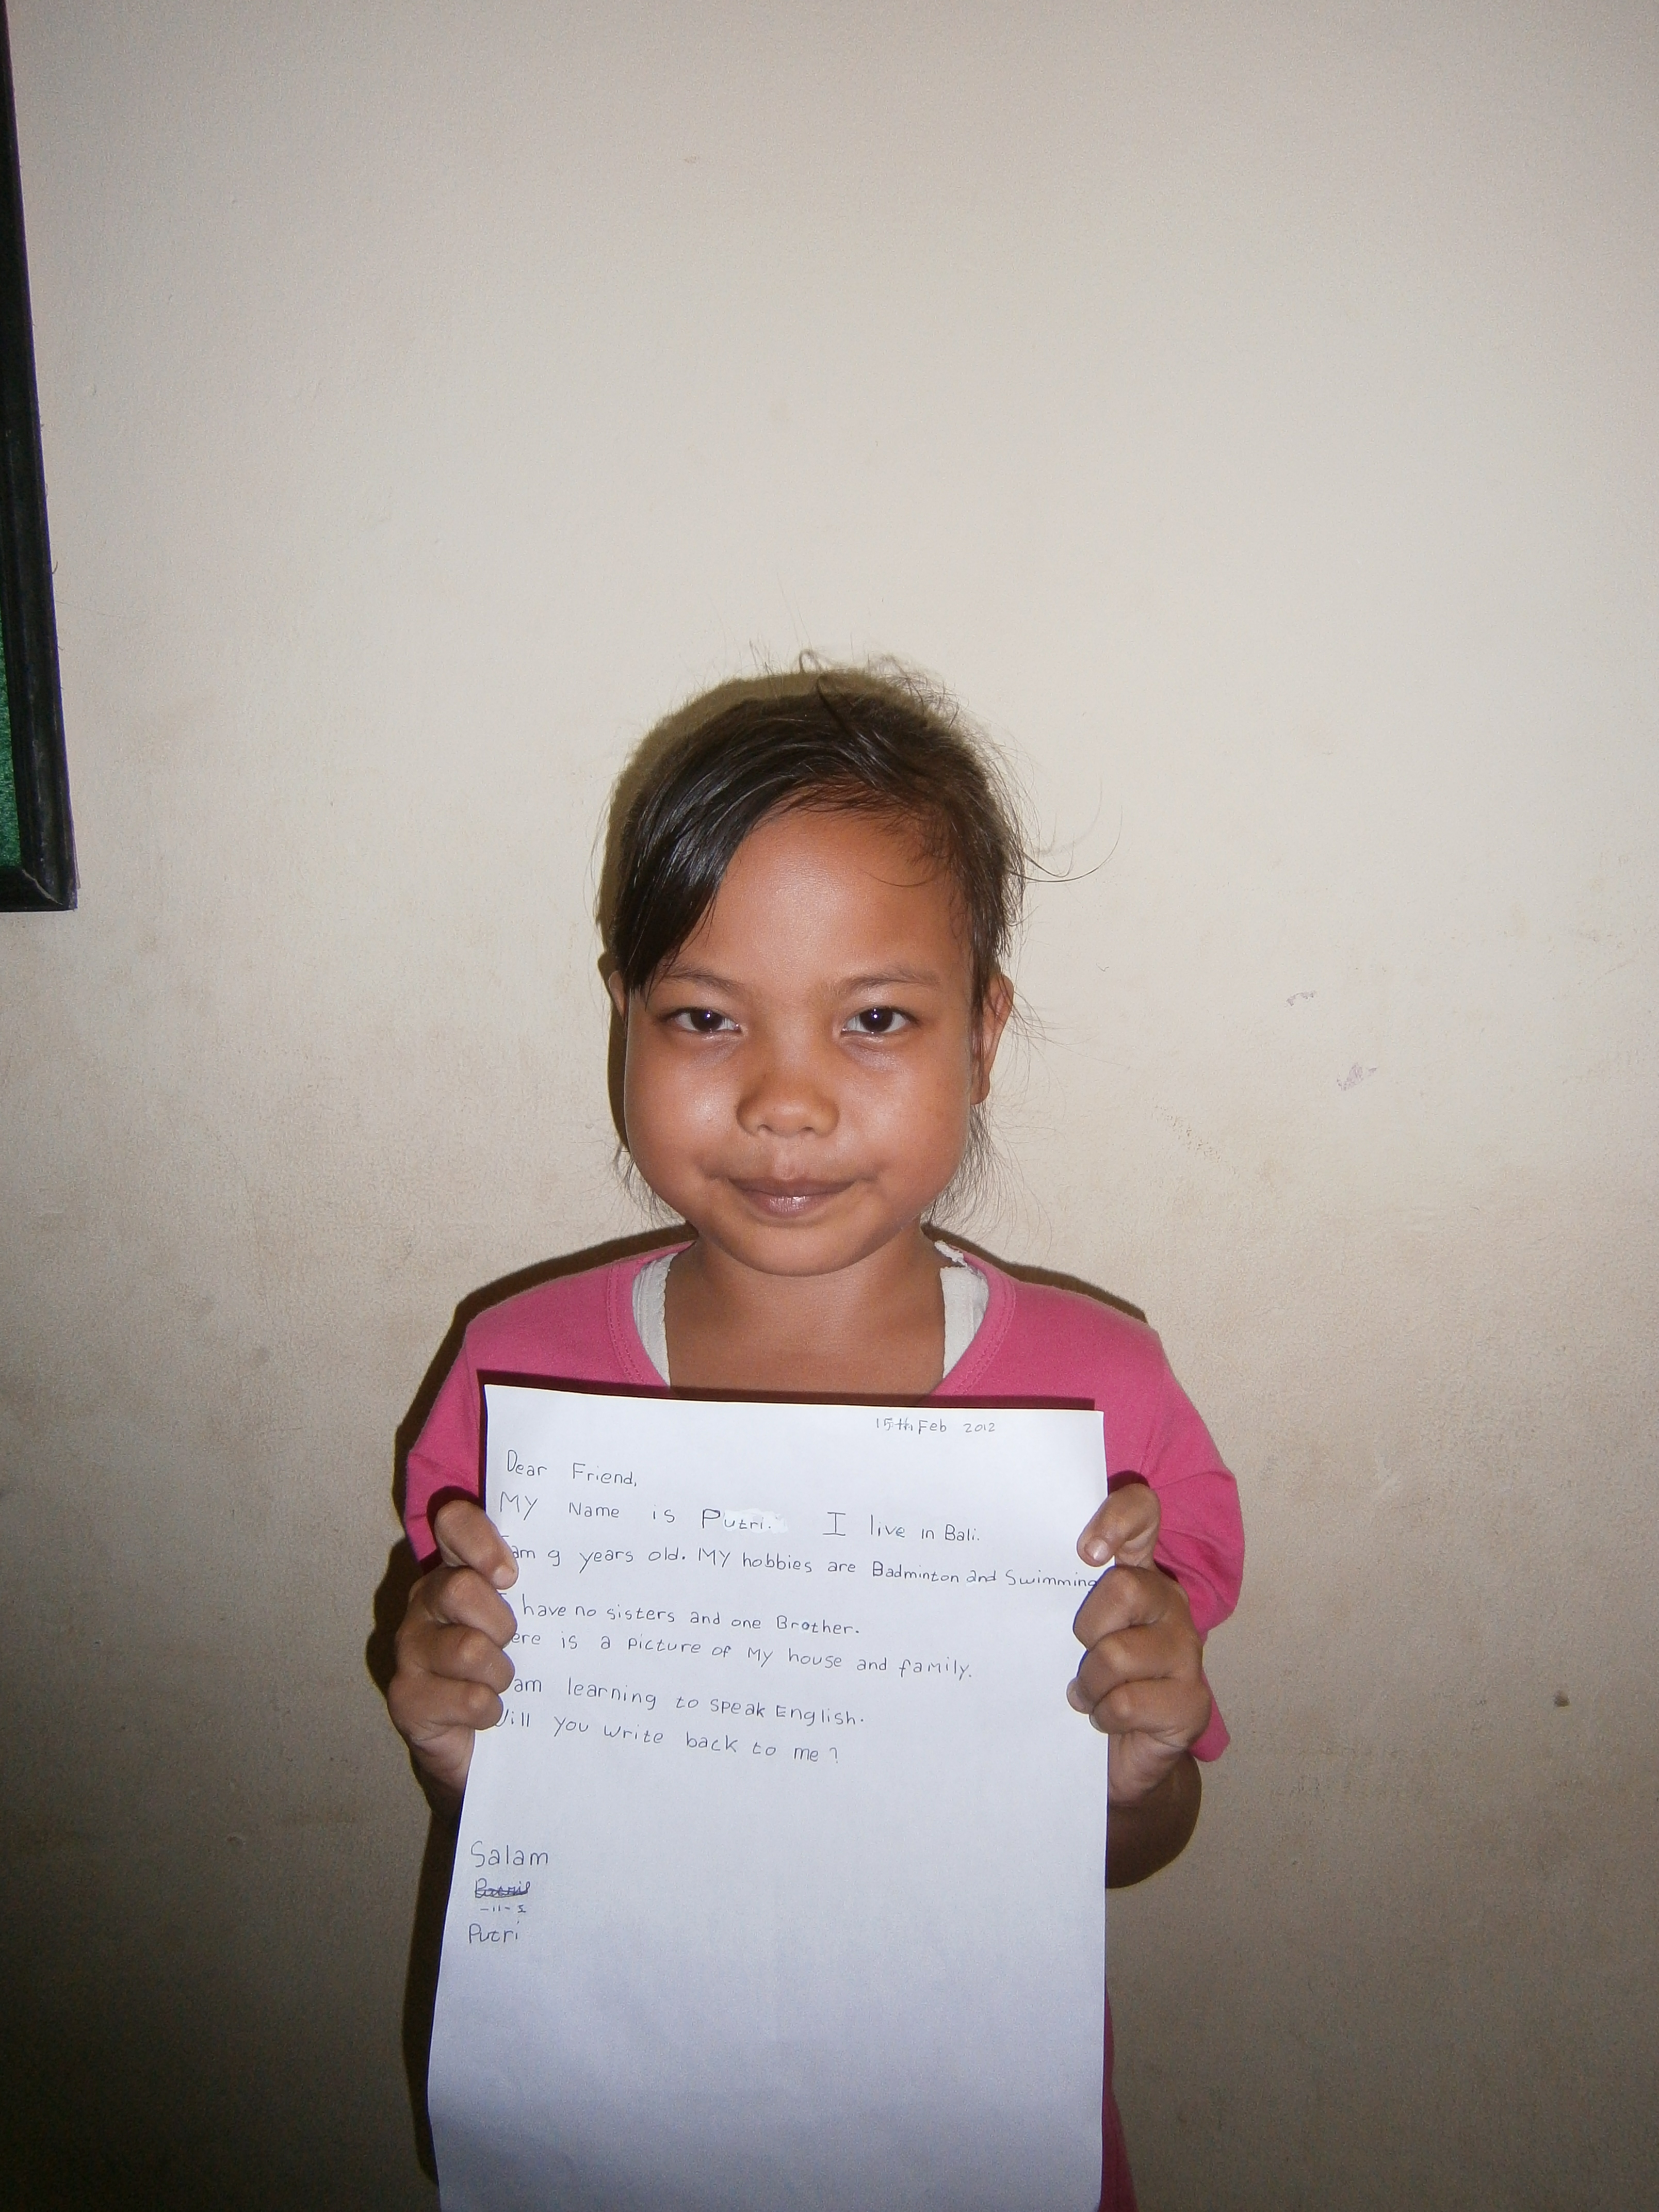 15th Feb 2012
Dear Friend,
MY Name is Putri. I live in Bali.
am 9 years old. MY hobbies are Badminton and Swimming
I have no sisters and one Brother.
ere is a picture of My house and family.
am learning to speak English.
Will you write back to me?
Salam
Putri